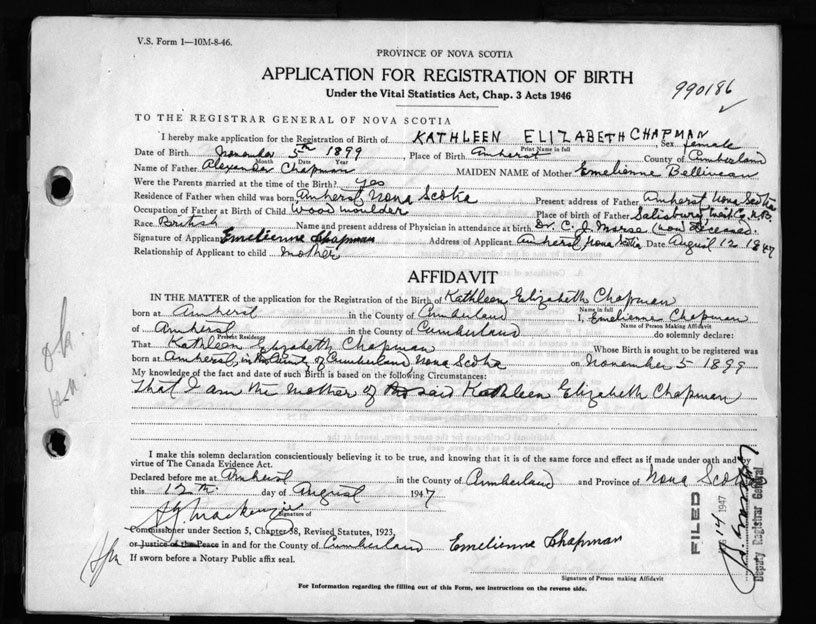 V.S. Form 1—10M-8-46.
PROVINCE OF NOVA SCOTIA
APPLICATION FOR REGISTRATION OF BIRTH
990186
Under the Vital Statistics Act, Chap. 3 Acts 1946
TO THE REGISTRAR GENERAL OF NOVA SCOTIA
I hereby make application for the Registration of Birth of KATHLEEN ELIZABETH CHAPMAN, Sex female
Print Name in full
Date of Birth November 5th 1899, Place of Birth Amherst County of Cumberland
Month Date Year
Name of Father Alexander Chapman MAIDEN NAME of Mother Emelienne Belliveau
Were the Parents married at the time of the Birth? yes
Residence of Father when child was born Amherst Nova Scotia Present address of Father Amherst Nova Scotia
Occupation of Father at Birth of Child Wood moulder Place of birth of Father Salisbury, West Co. N.B.
Race British Name and present address of Physician in attendance at birth Dr. C. J. Morse (now deceased.
Signature of Applicant Emelienne Chapman Address of Applicant Amherst, Nova Scotia Date August 12 1847
Relationship of Applicant to child mother
AFFIDAVIT
IN THE MATTER of the application for the Registration of the Birth of Kathleen Elizabeth Chapman
Name in full
born at Amherst in the County of Cumberland I, Emelienne Chapman
Name of Person Making Affidavit
of Amherst in the County of Cumberland do solemnly declare:
Present Residence
That Kathleen Elizabeth Chapman Whose Birth is sought to be registered was
born at Amherst, in the County of Cumberland Nova Scotia on November 5 1899
My knowledge of the fact and date of such Birth is based on the following Circumstances:
That I am the Mother of said Kathleen Elizabeth Chapman
I make this solemn declaration conscientiously believing it to be true, and knowing that it is of the same force and effect as if made under oath and by
virtue of The Canada Evidence Act.
Declared before me at Amherst in the County of Cumberland and Province of Nova Scotia
this 12th day of August 1947
Mackenzie
Signature of
Commissioner under Section 5, Chapter 38, Revised Statutes, 1923,
or Justice of the Peace in and for the County of Cumberland Emelienne Chapman
If sworn before a Notary Public affix seal.
Signature of Person making Affidavit
For Information regarding the filling out of this Form, see instructions on the reverse side.
FILED
14 1947
Deputy Registrar General